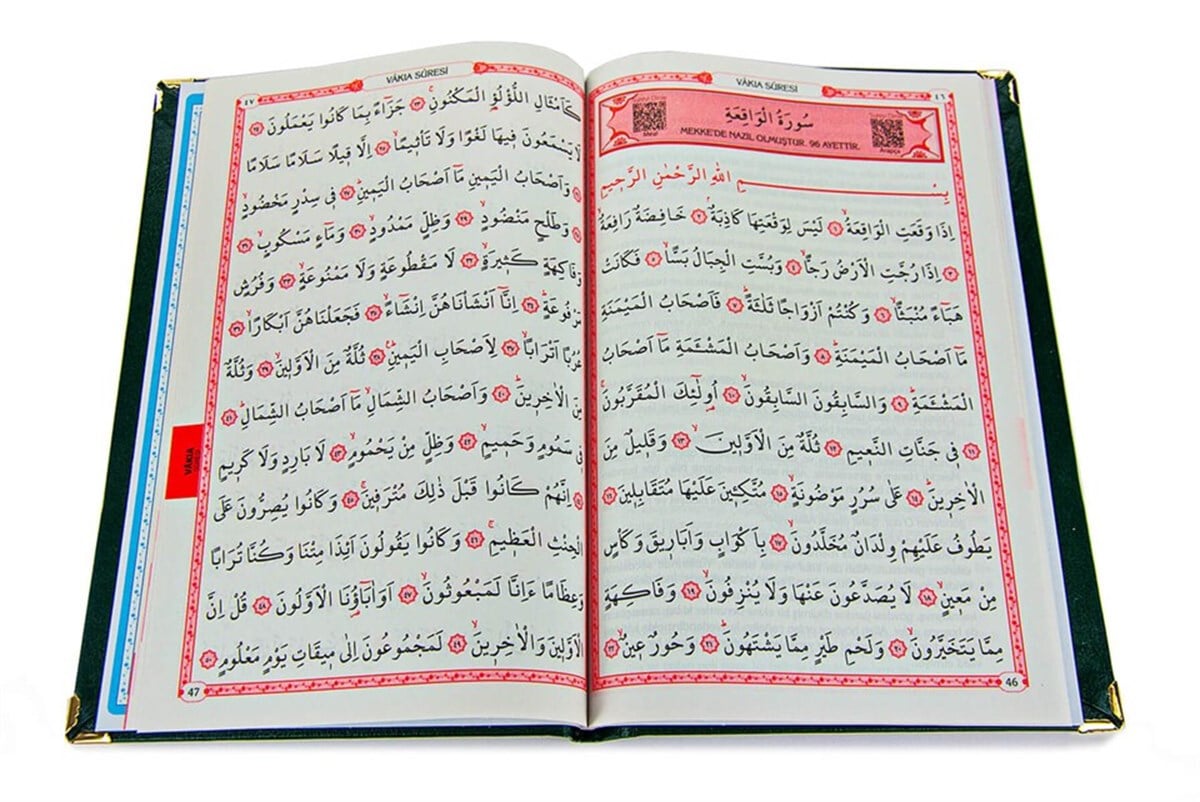 VÂKIA SÛRESİ
٤٦
سُورَةُ الْوَاقِعَةِ
MEKKE'DE NAZİL OLMUŞTUR. 96 AYETTİR.
Meal
Arapça
بِسْمِ اللّٰهِ الرَّحْمٰنِ الرَّح۪يمِ
اِذَا وَقَعَتِ الْوَاقِعَةُۙ ﴿١﴾ لَيْسَ لِوَقْعَتِهَا كَاذِبَةٌۢ ﴿٢﴾ خَافِضَةٌ رَافِعَةٌۙ
﴿٣﴾ اِذَا رُجَّتِ الْاَرْضُ رَجًّاۙ ﴿٤﴾ وَبُسَّتِ الْجِبَالُ بَسًّاۙ ﴿٥﴾ فَكَانَتْ
هَبَٓاءً مُنْبَثًّاۙ ﴿٦﴾ وَكُنْتُمْ اَزْوَاجًا ثَلٰثَةًۜ ﴿٧﴾ فَاَصْحَابُ الْمَيْمَنَةِ
مَٓا اَصْحَابُ الْمَيْمَنَةِۜ ﴿٨﴾ وَاَصْحَابُ الْمَشْـَٔمَةِ مَٓا اَصْحَابُ
الْمَشْـَٔمَةِۜ ﴿٩﴾ وَالسَّابِقُونَ السَّابِقُونَۙ ﴿١٠﴾ اُو۬لٰٓئِكَ الْمُقَرَّبُونَۚ
﴿١١﴾ ف۪ي جَنَّاتِ النَّع۪يمِ ﴿١٢﴾ ثُلَّةٌ مِنَ الْاَوَّل۪ينَۙ ﴿١٣﴾ وَقَل۪يلٌ مِنَ
الْاٰخِر۪ينَۜ ﴿١٤﴾ عَلٰى سُرُرٍ مَوْضُونَةٍۙ ﴿١٥﴾ مُتَّكِـ۪ٔينَ عَلَيْهَا مُتَقَابِل۪ينَ ﴿١٦﴾
يَطُوفُ عَلَيْهِمْ وِلْدَانٌ مُخَلَّدُونَۙ ﴿١٧﴾ بِاَكْوَابٍ وَاَبَار۪يقَ وَكَأْسٍ
مِنْ مَع۪ينٍۙ ﴿١٨﴾ لَا يُصَدَّعُونَ عَنْهَا وَلَا يُنْزِفُونَۙ ﴿١٩﴾ وَفَاكِهَةٍ
مِمَّا يَتَخَيَّرُونَۙ ﴿٢٠﴾ وَلَحْمِ طَيْرٍ مِمَّا يَشْتَهُونَۜ ﴿٢١﴾ وَحُورٌ ع۪ينٌۙ ﴿٢٢﴾
46
VÂKIA SÛRESİ
٤٧
كَاَمْثَالِ اللُّؤْلُؤِ۬ الْمَكْنُونِۚ ﴿٢٣﴾ جَزَٓاءً بِمَا كَانُوا يَعْمَلُونَ ﴿٢٤﴾
لَا يَسْمَعُونَ ف۪يهَا لَغْوًا وَلَا تَأْث۪يمًاۙ ﴿٢٥﴾ اِلَّا ق۪يلًا سَلَامًا سَلَامًا
﴿٢٦﴾ وَاَصْحَابُ الْيَم۪ينِ مَٓا اَصْحَابُ الْيَم۪ينِۜ ﴿٢٧﴾ ف۪ي سِدْرٍ مَخْضُودٍۙ
﴿٢٨﴾ وَطَلْحٍ مَنْضُودٍۙ ﴿٢٩﴾ وَظِلٍّ مَمْدُودٍۙ ﴿٣٠﴾ وَمَٓاءٍ مَسْكُوبٍۙ ﴿٣١﴾
وَفَاكِهَةٍ كَث۪يرَةٍۙ ﴿٣٢﴾ لَا مَقْطُوعَةٍ وَلَا مَمْنُوعَةٍۙ ﴿٣٣﴾ وَفُرُشٍ
مَرْفُوعَةٍۜ ﴿٣٤﴾ اِنَّٓا اَنْشَأْنَاهُنَّ اِنْشَٓاءًۙ ﴿٣٥﴾ فَجَعَلْنَاهُنَّ اَبْكَارًاۙ ﴿٣٦﴾
عُرُبًا اَتْرَابًاۙ ﴿٣٧﴾ لِاَصْحَابِ الْيَم۪ينِۜ۟ ﴿٣٨﴾ ثُلَّةٌ مِنَ الْاَوَّل۪ينَۙ ﴿٣٩﴾ وَثُلَّةٌ
مِنَ الْاٰخِر۪ينَۜ ﴿٤٠﴾ وَاَصْحَابُ الشِّمَالِۙ مَٓا اَصْحَابُ الشِّمَالِۜ ﴿٤١﴾
ف۪ي سَمُومٍ وَحَم۪يمٍۙ ﴿٤٢﴾ وَظِلٍّ مِنْ يَحْمُومٍۙ ﴿٤٣﴾ لَا بَارِدٍ وَلَا كَر۪يمٍ
﴿٤٤﴾ اِنَّهُمْ كَانُوا قَبْلَ ذٰلِكَ مُتْرَف۪ينَۚ ﴿٤٥﴾ وَكَانُوا يُصِرُّونَ عَلَى
الْحِنْثِ الْعَظ۪يمِۚ ﴿٤٦﴾ وَكَانُوا يَقُولُونَ اَئِذَا مِتْنَا وَكُنَّا تُرَابًا
وَعِظَامًا ءَاِنَّا لَمَبْعُوثُونَۙ ﴿٤٧﴾ اَوَاٰبَٓاؤُ۬نَا الْاَوَّلُونَ ﴿٤٨﴾ قُلْ اِنَّ
الْاَوَّل۪ينَ وَالْاٰخِر۪ينَۙ ﴿٤٩﴾ لَمَجْمُوعُونَ اِلٰى م۪يقَاتِ يَوْمٍ مَعْلُومٍ ﴿٥٠﴾
47
VÂKIA